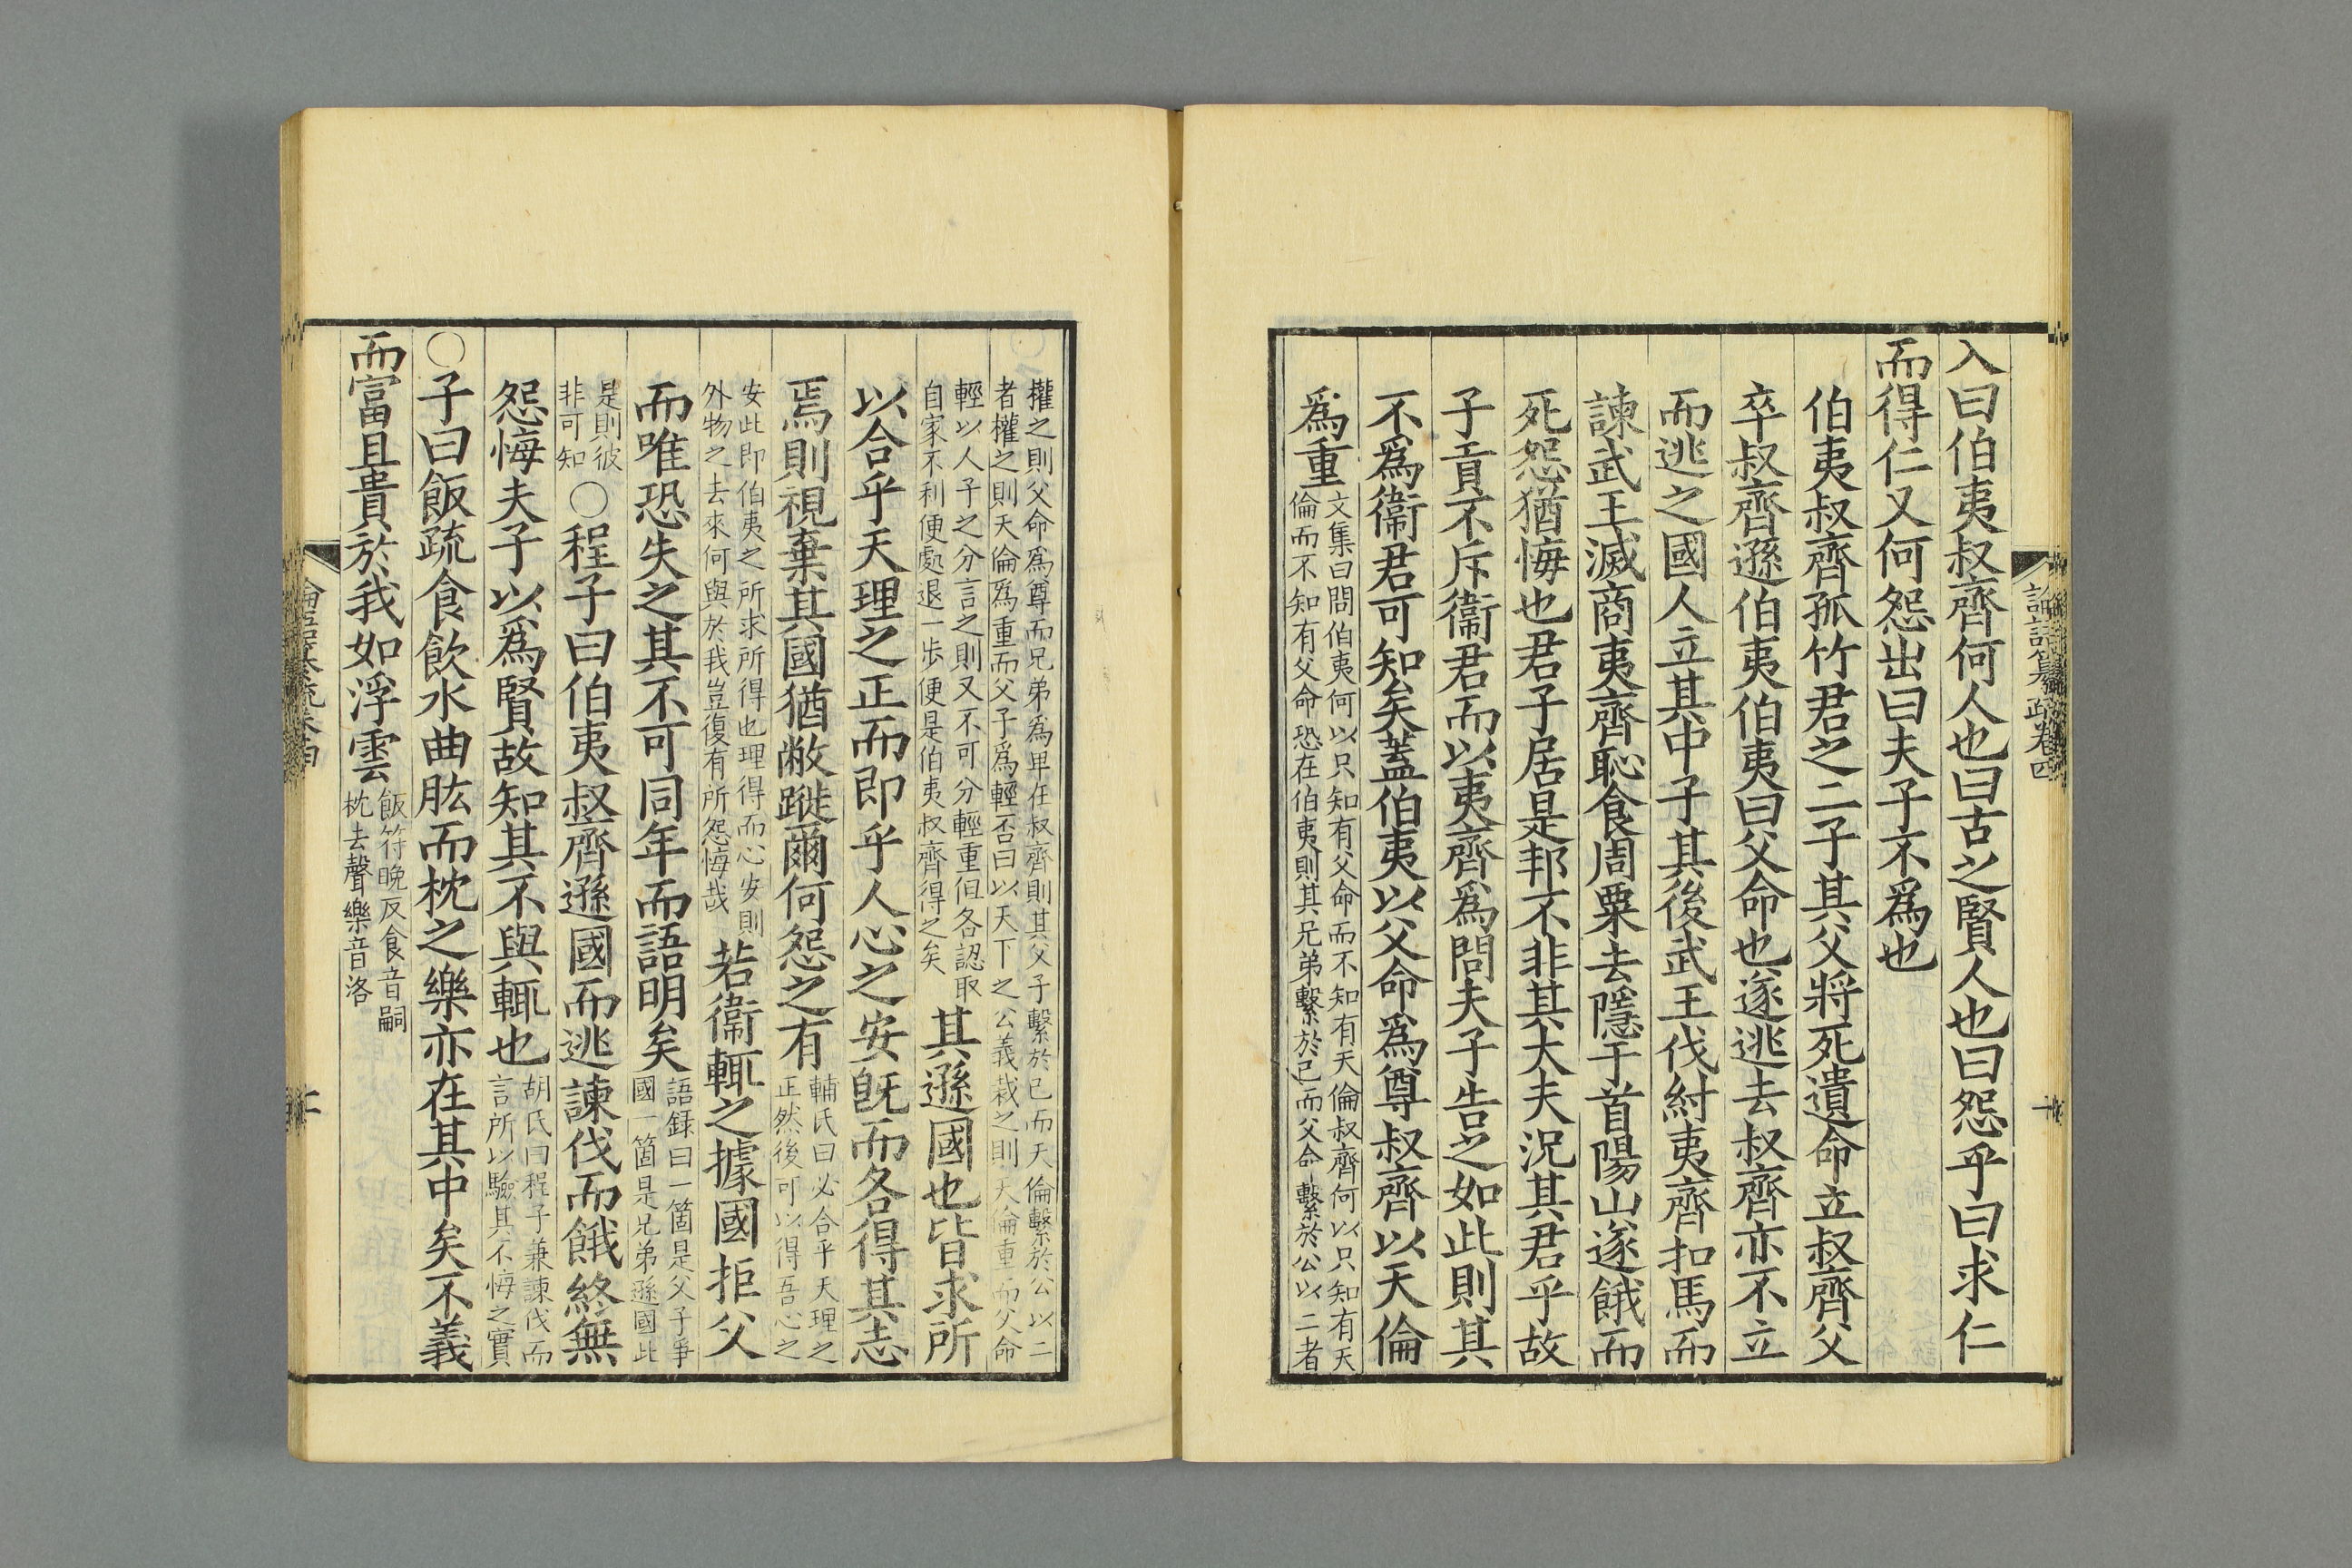 入曰伯夷叔齊何人也曰古之賢人也曰怨乎曰求仁
而得仁又何怨出曰夫子不爲也
伯夷叔齊孤竹君之二子其父將死遺命立叔齊父
卒叔齊遜伯夷伯夷曰父命也遂逃去叔齊亦不立
而逃之國人立其中子其後武王伐紂夷齊扣馬而
諫武王滅商夷齊恥食周粟去隱于首陽山遂餓而
死怨猶悔也君子居是邦不非其大夫況其君乎故
子貢不斥衞君而以夷齊爲問夫子告之如此則其
不爲衞君可知矣蓋伯夷以父命爲尊叔齊以天倫
爲重
文集曰問伯夷何以只知有父命而不知有天倫叔齊何以只知有天
倫而不知有父命恐在伯夷則其兄弟繫於己而父命繫於公以二者
權之則父命爲尊而兄弟爲卑在叔齊則其父子繫於己而天倫繫於公以二
者權之則天倫爲重而父子爲輕否曰以天下之公義裁之則天倫重而父命
輕以人子之分言之則又不可分輕重但各認取
自家不利便處退一步便是伯夷叔齊得之矣
其遜國也皆求所
以合乎天理之正而即乎人心之安旣而各得其志
焉則視棄其國猶敝蹝爾何怨之有
輔氏曰必合乎天理之
正然後可以得吾心之
安此即伯夷之所求所得也理得而心安則
外物之去來何與於我豈復有所怨悔哉
若衞輒之據國拒父
而唯恐失之其不可同年而語明矣
語録曰一箇是父子爭
國一箇是兄弟遜國此
是則彼
非可知
○程子曰伯夷叔齊遜國而逃諫伐而餓終無
怨悔夫子以爲賢故知其不與輒也
胡氏曰程子兼諫伐而
言所以驗其不悔之實
○子曰飯疏食飲水曲肱而枕之樂亦在其中矣不義
而富且貴於我如浮雲
飯符晚反食音嗣
枕去聲樂音洛